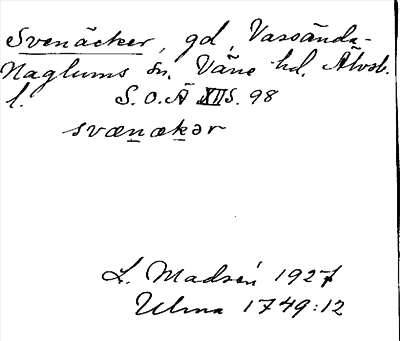 Svenäcker, gd, Vassända-
Naglums sn, Väne hd. Älvsb.
l. S.O.Ä XII S. 98
svænækər
L. Madsén 1927
Ulma 1749:12